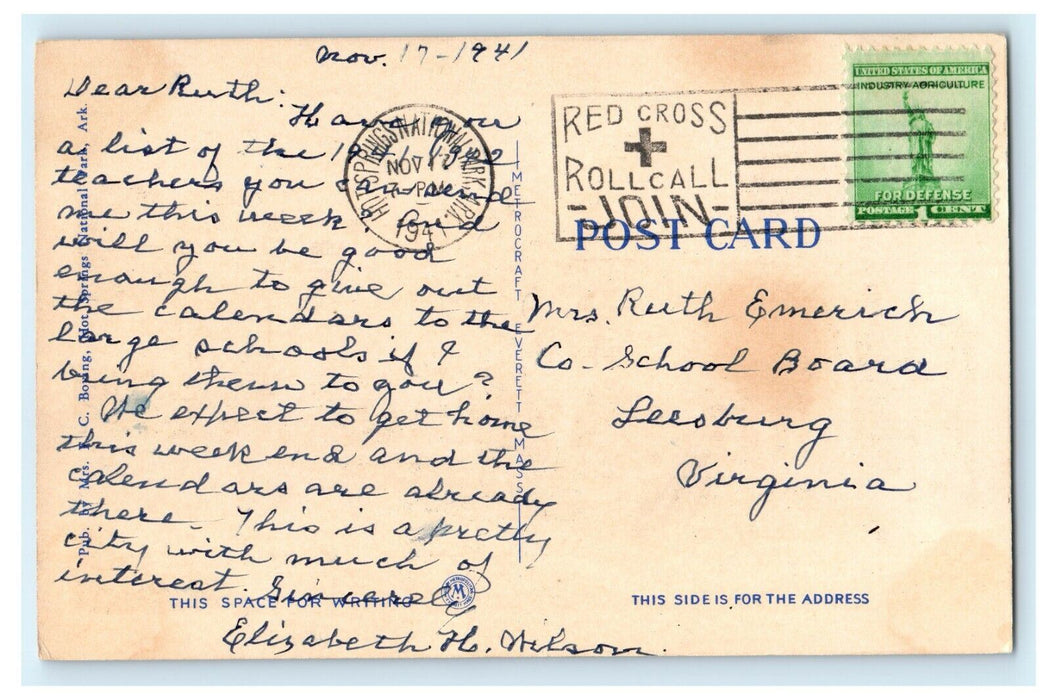 Nov. 17-1941
Dear Ruth:
Have you
a list of the
teachers you can send
me this week. And
will you be good
enough to give out
the calendars to the
large schools if I
bring them to you?
We expect to get home
this week end and the
calendars are already
there. This is a pretty
city with much of
interest. Sincerely
Elizabeth H. Wilson.
THIS SPACE FOR WRITING
Pub. by Mrs. C. Boxing, Hot Springs National Park, Ark.
METROCRAFT EVERETT MASS
HOT SPRINGS NATIONAL PARK, ARK.
NOV 17
PM
1941
RED CROSS
ROLL CALL
- JOIN -
UNITED STATES OF AMERICA
INDUSTRY AGRICULTURE
FOR DEFENSE
POSTAGE 1 CENT
POST CARD
Mrs. Ruth Emerich
Co. School Board
Leesburg
Virginia
THIS SIDE IS FOR THE ADDRESS